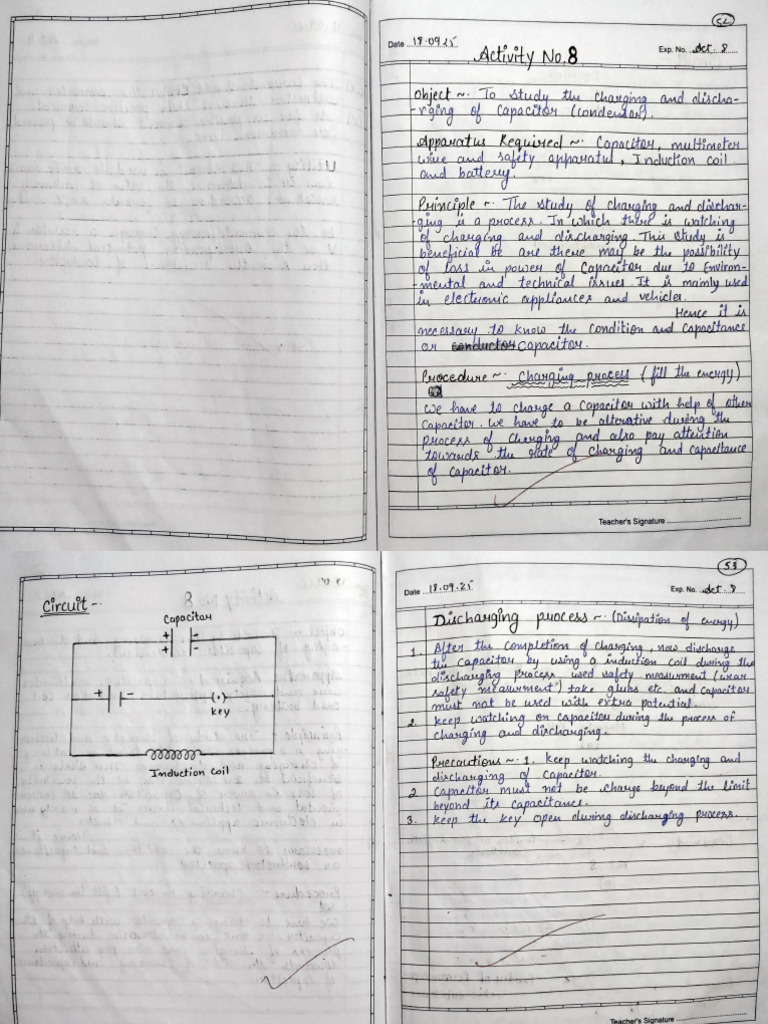 52
Date 18.09.25
Exp. No. Act. 8
Activity No. 8
Object ~. To study the charging and discha-
-rging of Capacitor (Condensor).
Apparatus Required ~. Capacitor, multimeter
wire and safety apparatus, Induction coil
and battery.
Principle ~. The study of charging and dischar-
-ging is a process. In which there is watching
of charging and discharging. This study is
beneficial be are there may be the possibility
of loss in power of Capacitor due to Environ-
-mental and technical issues. It is mainly used
in electronic appliances and vehicles.
Hence it is
necessary to know the condition and capacitance
or conductor Capacitor.
Procedure ~. Charging process (fill the energy)
We have to charge a capacitor with help of other
capacitor. we have to be alterative during the
process of charging and also pay attention
towards the rate of charging and capacitance
of capacitor.
Teacher's Signature
53
Date 18.09.25
Exp. No. Act. 8
Circuit ~.
Capacitor
+ -
+ -
+ -
(.)
key
Induction Coil
Discharging process ~. (Dissipation of energy)
1. After the completion of charging, now discharge
the capacitor by using a induction coil during the
discharging process, used safety measurment (wear
safety measurment) take glubs etc. and capacitor
must not be used with extra potential.
2. keep watching on capacitor during the process of
charging and discharging.
Precautions ~. 1. keep watching the charging and
discharging of capacitor.
2 Capacitor must not be charge beyond the limit
beyond its capacitance.
3. keep the key open during discharging process.
Teacher's Signature